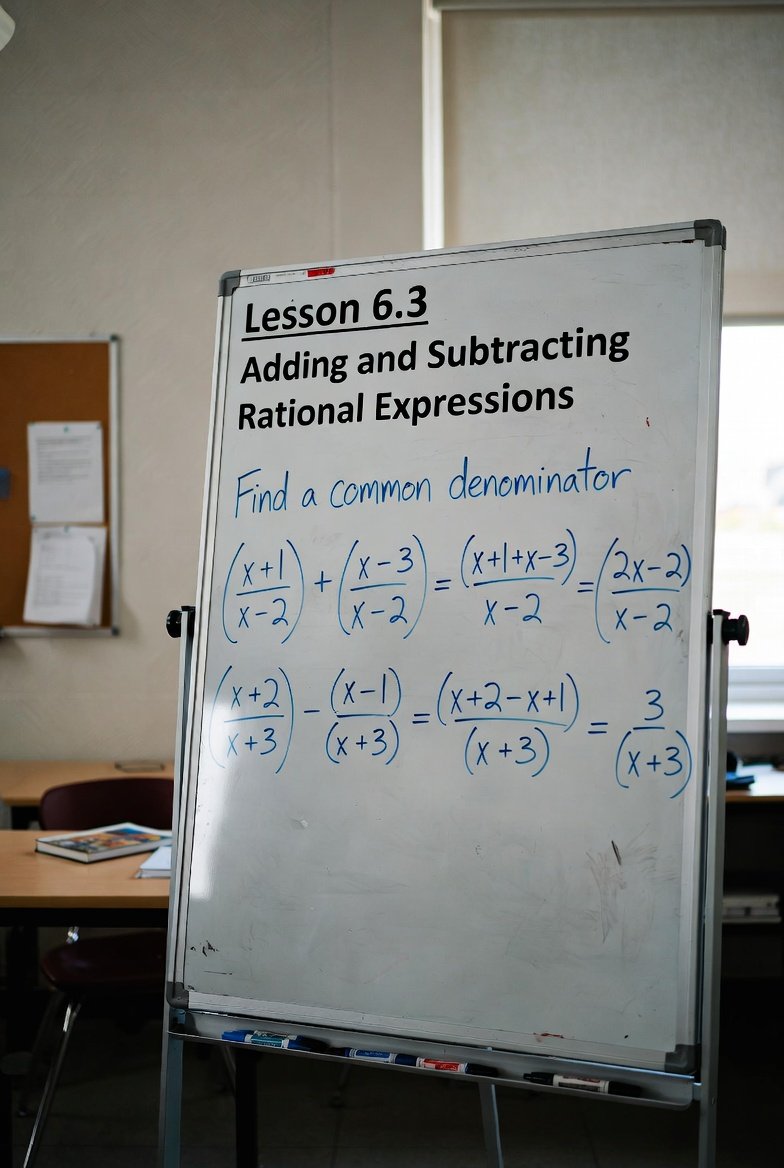 Lesson 6.3
Adding and Subtracting
Rational Expressions
Find a common denominator
(x+1 / x-2) + (x-3 / x-2) = (x+1+x-3) / x-2 = (2x-2) / x-2
(x+2 / x+3) - (x-1) / (x+3) = (x+2-x+1) / (x+3) = 3 / (x+3)